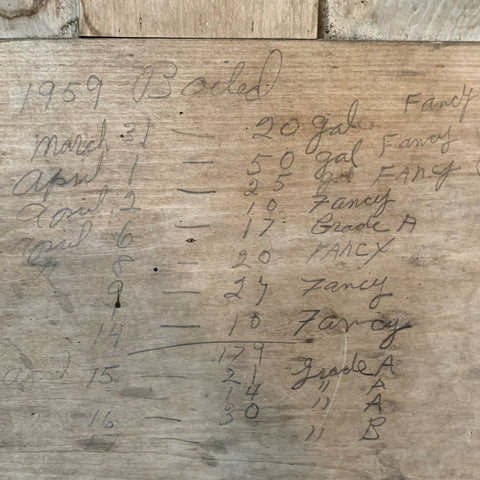 1959 Boiled
March 31 — 20 gal Fancy
April 1 — 50 gal Fancy
April 2 — 25 gal FANCY
10 Fancy
April 6 — 17 Grade A
" 8 — 20 FANCY
9 — 27 Fancy
14 — 10 Fancy
179
April 15 — 21 Grade A
14 " A
16 — 30 " A
" B